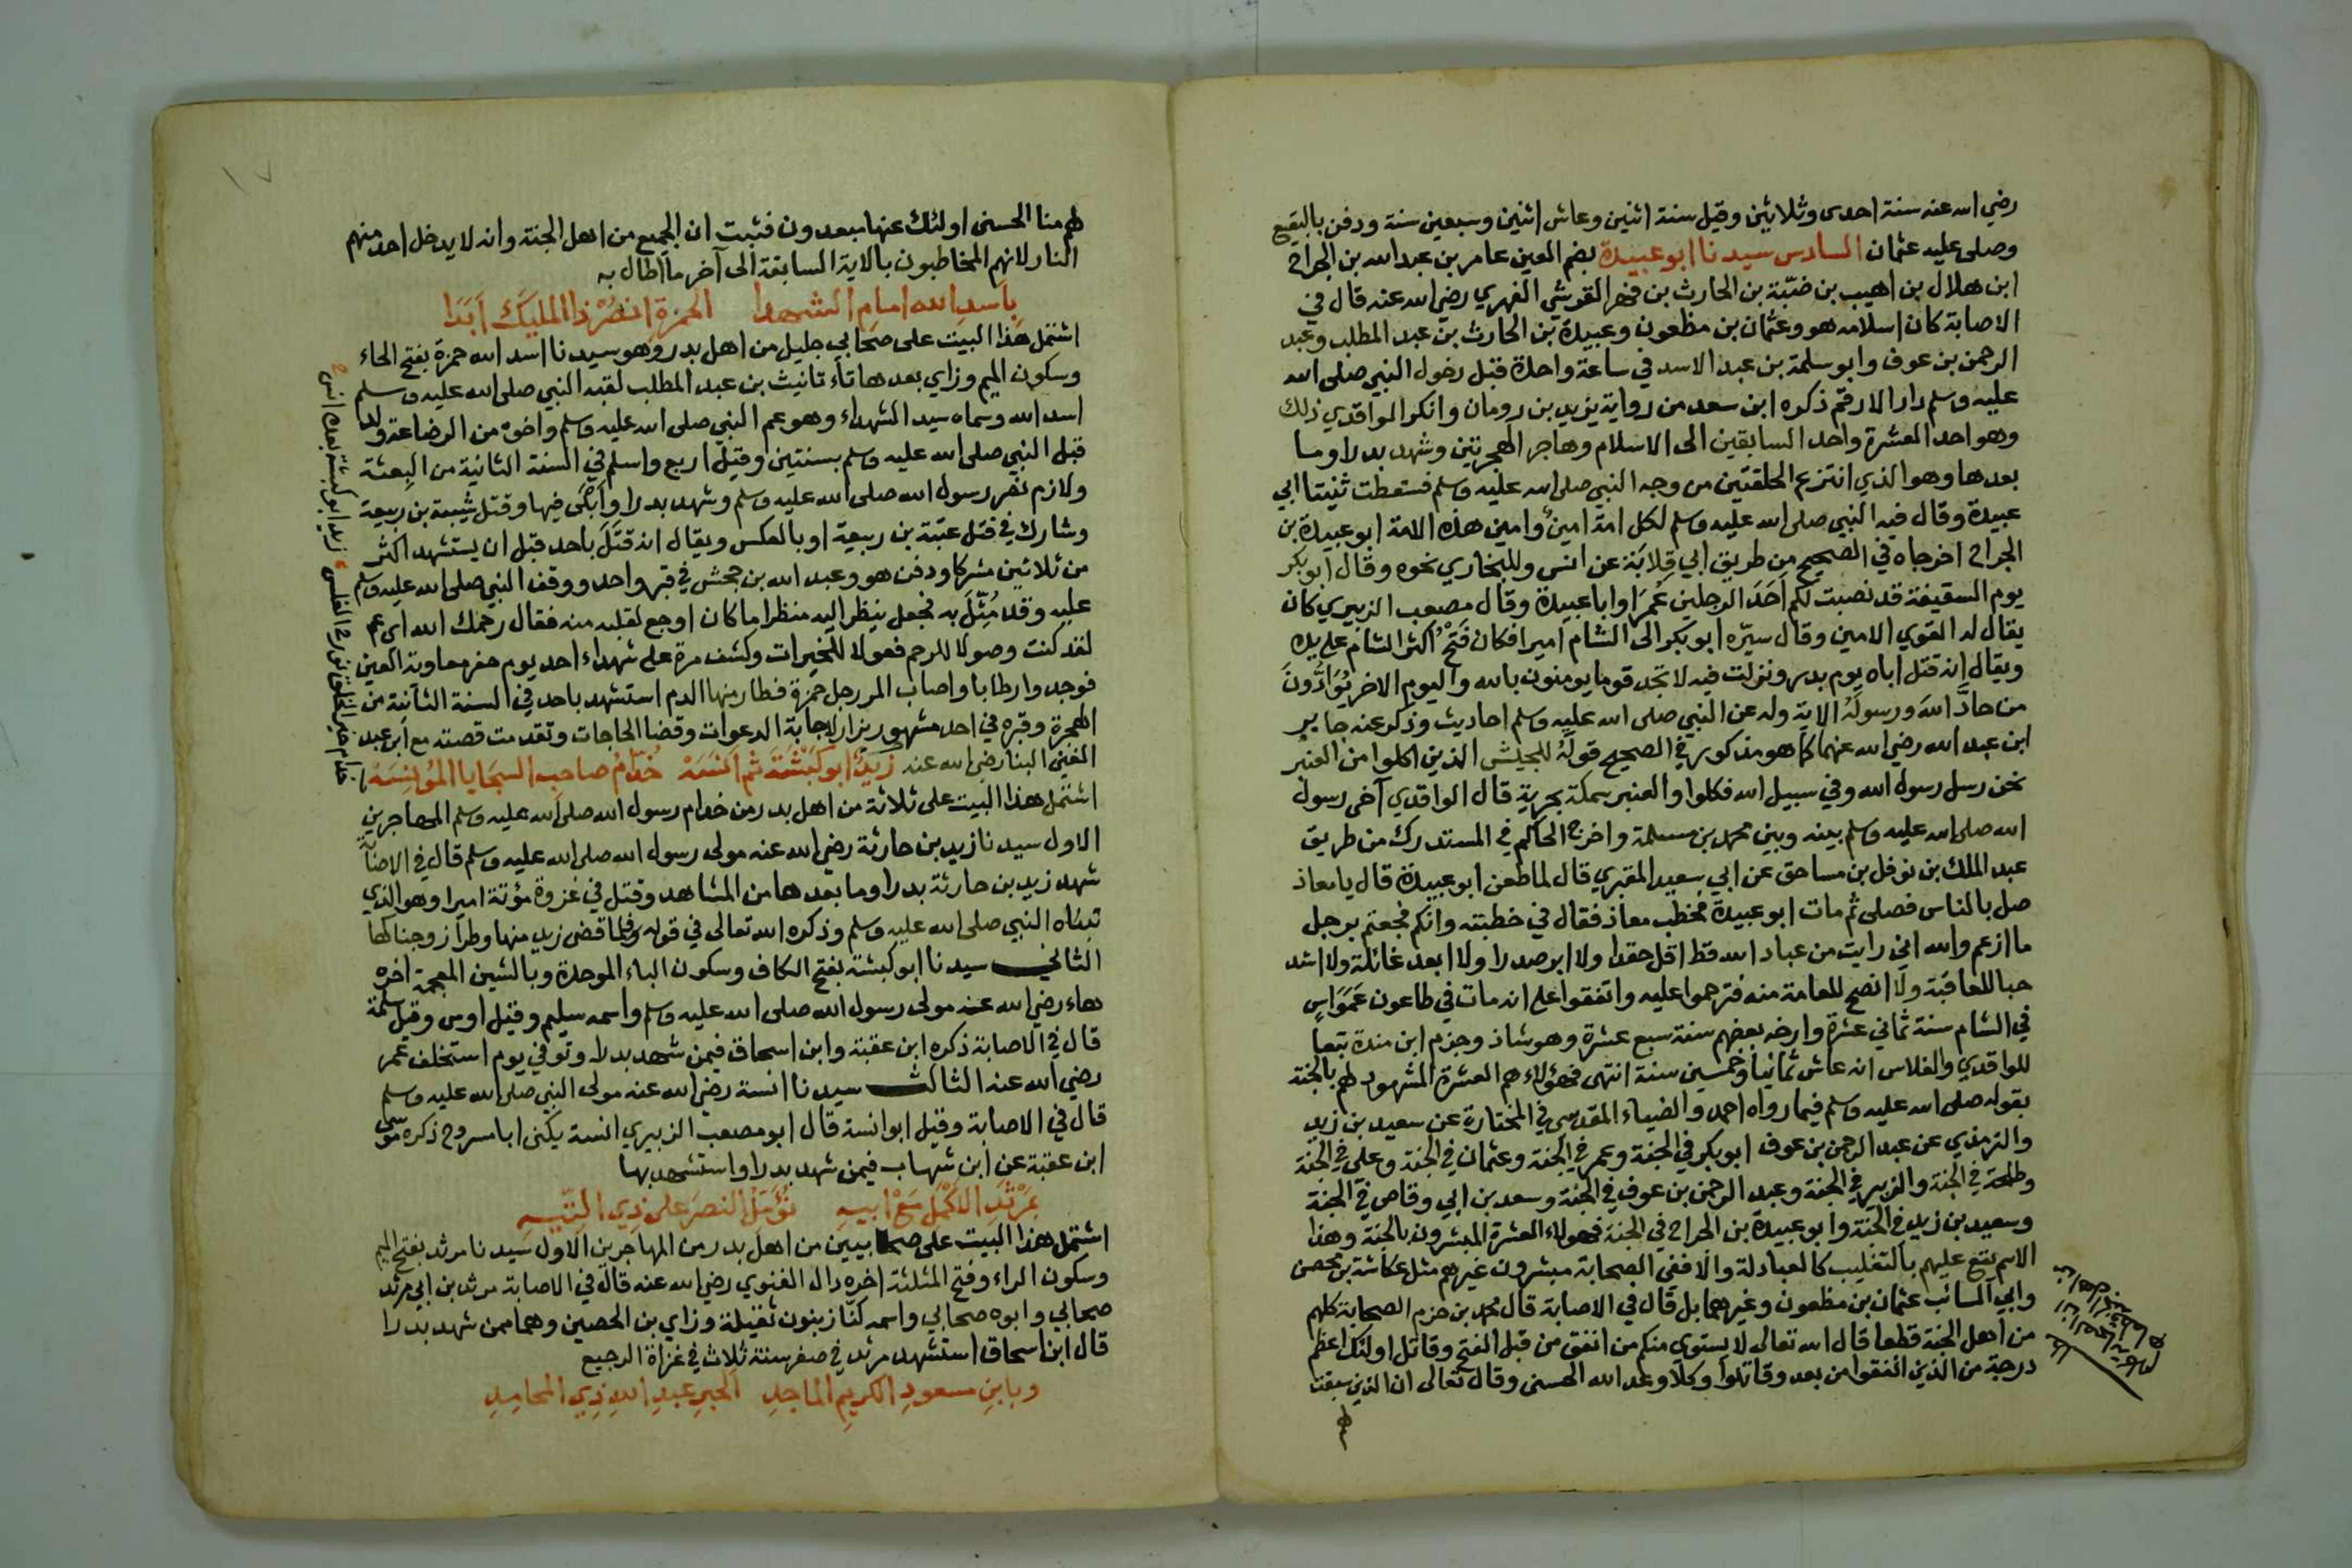 رضي الله عنه سنة احدى وثلاثين وقيل سنة اثنين وعاش اثنين وسبعين سنة ودفن بالبقيع
وصلى عليه عثمان السادس سيدنا ابو عبيدة بضم العين عامر بن عبد الله بن الجراح
ابن هلال بن اهيب بن ضبّة بن الحارث بن فهر القرشي الفهري رضي الله عنه قال في
الاصابة كان اسلامه هو وعثمان بن مظعون وعبيدة بن الحارث بن عبد المطلب وعبد
الرحمن بن عوف وابو سلمة بن عبد الاسد في ساعة واحدة قبل دخول النبي صلى الله
عليه وسلم دار الارقم ذكره ابن سعد من رواية يزيد بن رومان وانكر الواقدي ذلك
وهو احد العشرة واحد السابقين الى الاسلام وهاجر الهجرتين وشهد بدرا وما
بعدها وهو الذي انتزع الحلقتين من وجه النبي صلى الله عليه وسلم فسقطت ثنيتا ابي
عبيدة وقال فيه النبي صلى الله عليه وسلم لكل امة امين وامين هذه الامة ابو عبيدة بن
الجراح اخرجاه في الصحيح من طريق ابي قِلابَة عن انس وللبخاري نحوه وقال ابو بكر
يوم السقيفة قد نصبت لكم اَحَدَ الرجلين عُمَرَ اوابا عبيدة وقال مصعب الزبيري كان
يقال له القوي الامين وقال سيّره ابو بكر الى الشام اميرا فكان فَتْحُ اكثر الشام على يده
ويقال انه قتل اباه يوم بدر ونزلت فيه لا تجد قوما يومنون بالله واليوم الاخر يُوَادُّونَ
من حادَّ اللهَ ورسولَهُ الاية وله عن النبي صلى الله عليه وسلم احاديث وذكر عنه جابر
ابن عبد الله رضي الله عنهما كما هو مذكور في الصحيح قولَهُ للجيش الذين اكلوا من العنبر
نحن رسل رسول الله وفي سبيل الله فكلوا والعنبر سمكة بحرية قال الواقدي آخى رسول
الله صلى الله عليه وسلم بينه وبين محمد بن مسلمة واخرج الحاكم في المستدرك من طريق
عبد الملك بن نوفل بن مساحق عن ابي سعيد المقبري قال لما طعن ابو عبيدة قال يا معاذ
صل بالناس فصلى ثم مات ابو عبيدة فخطب معاذ فقال في خطبته وانكم فجعتم برجل
ما ازعم والله اني رايت من عباد الله قط اقل حقدا ولا ابر صدرا ولا ابعد غائلة ولا اشد
حبا للعاقبة ولا انصح للعامة منه فترحموا عليه واتفقوا على انه مات في طاعون عَمَوَاسٍ
في الشام سنة ثماني عشرة وارخه بعضهم سنة سبع عشرة وهو شاذ وجزم ابن مندة تبعا
للواقدي والفلاس انه عاش ثمانيا وخمسين سنة انتهى فهؤلاء هم العشرة المشهود لهم بالجنة
بقوله صلى الله عليه وسلم فيما رواه احمد والضياء المقدسي في المختارة عن سعيد بن زيد
والترمذي عن عبد الرحمن بن عوف ابو بكر في الجنة وعمر في الجنة وعثمان في الجنة وعلي في الجنة
وطلحة في الجنة والزبير في الجنة وعبد الرحمن بن عوف في الجنة وسعد بن ابي وقاص في الجنة
وسعيد بن زيد في الجنة وابو عبيدة بن الجراح في الجنة فهولاء العشرة المبشرون بالجنة وهذا
الاسم يقع عليهم بالتغليب كالعبادلة والا ففي الصحابة مبشرون غيرهم مثل عكاشة بن محصن
وابي السائب عثمان بن مظعون وغيرهما بل قال في الاصابة قال محمد بن حزم الصحابة كلهم
من اهل الجنة قطعا قال الله تعالى لا يستوي منكم من انفق من قبل الفتح وقاتل اولئك اعظم
درجة من الذين انفقوا من بعد وقاتلوا وكلا وعد الله الحسنى وقال تعالى ان الذين سبقت
لهم
١٧
لهم منا الحسنى اولئك عنها مبعدون فثبت ان الجميع من اهل الجنة وانه لا يدخل احد منهم
النار لانهم المخاطبون بالاية السابقة الى آخر ما اطال به
بِاَسدِ الله امامِ الشهدا الحمزةِ انصُرْ ذا المليكَ اَبَدًا
اشتمل هذا البيت على صحابي جليل من اهل بدر وهو سيدنا اسد الله حمزة بفتح الحاء
وسكون الميم وزاي بعدها تاء تانيث بن عبد المطلب لقبه النبي صلى الله عليه وسلم
اسد الله وسماه سيد الشهداء وهو عم النبي صلى الله عليه وسلم واخوه من الرضاعة ولد
قبل النبي صلى الله عليه وسلم بسنتين وقيل اربع واسلم في السنة الثانية من البعثة
ولازم نصر رسول الله صلى الله عليه وسلم وشهد بدرا وابلى فيها وقتل شيبة بن ربيعة
وشارك في قتل عتبة بن ربيعة او بالعكس ويقال انه قَتَلَ باحد قبل ان يستشهد اكثر
من ثلاثين مشركا ودفن هو وعبد الله بن جحش في قبر واحد ووقف النبي صلى الله عليه وسلم
عليه وقد مُثِّلَ به فجعل ينظر اليه منظرا ما كان اوجع لقلبه منه فقال رحمك الله اي عم
لقد كنت وصولا للرحم فعولا للخيرات وكشف مرة على شهداء احد يوم حفر معاوية العين
فوجدوا رطابا واصاب المر رجل حمزة فطار منها الدم استشهد باحد في السنة الثانية من
الهجرة وقبره في احد مشهور يزار لاجابة الدعوات وقضا الحاجات وتقدمت قصته مع ابن عبد
الغني البنا رضي الله عنه زيدٌ ابو كَبْشَةَ ثم اَنَسَهْ خُدّامُ صاحبِ السجايا المُؤنِسَهْ
اشتمل هذا البيت على ثلاثة من اهل بدر من خدام رسول الله صلى الله عليه وسلم المهاجرين
الاول سيدنا زيد بن حارثة رضي الله عنه مولى رسول الله صلى الله عليه وسلم قال في الاصابة
شهد زيد بن حارثة بدرا وما بعدها من المشاهد وقتل في غزوة مؤتة اميرا وهو الذي
تبناه النبي صلى الله عليه وسلم وذكره الله تعالى في قوله فلما قضى زيد منها وطرا زوجناكها
الثاني سيدنا ابو كبشة بفتح الكاف وسكون الباء الموحدة وبالشين المعجمة اخره
هاء رضي الله عنه مولى رسول الله صلى الله عليه وسلم واسمه سليم وقيل اوس وقيل سلمة
قال في الاصابة ذكره ابن عقبة وابن اسحاق فيمن شهد بدرا وتوفي يوم استخلف عمر
رضي الله عنه الثالث سيدنا انسة رضي الله عنه مولى النبي صلى الله عليه وسلم
قال في الاصابة وقيل ابو انسة قال ابو مصعب الزبيري انسة يكنى ابا مسروح ذكره موسى
ابن عقبة عن ابن شهاب فيمن شهد بدرا واستشهد بها
بمَرْثدِ الاكْمَل مَعْ ابيهِ نُؤَمِّلُ النصرَ على ذي التّيهِ
اشتمل هذا البيت على صحابيين من اهل بدر من المهاجرين الاول سيدنا مرثد بفتح الميم
وسكون الراء وفتح المثلثة اخره دال الغنوي رضي الله عنه قال في الاصابة مرثد بن ابي مرثد
صحابي وابوه صحابي واسمه كنّاز بنون ثقيلة وزاي بن الحصين وهما ممن شهد بدرا
قال ابن اسحاق استشهد مرثد في صفر سنة ثلاث في غزاة الرجيع
وبابنِ مسعودِ الكريمِ الماجدِ الحبرِ عبدِ اللهِ ذِي المحامِدِ